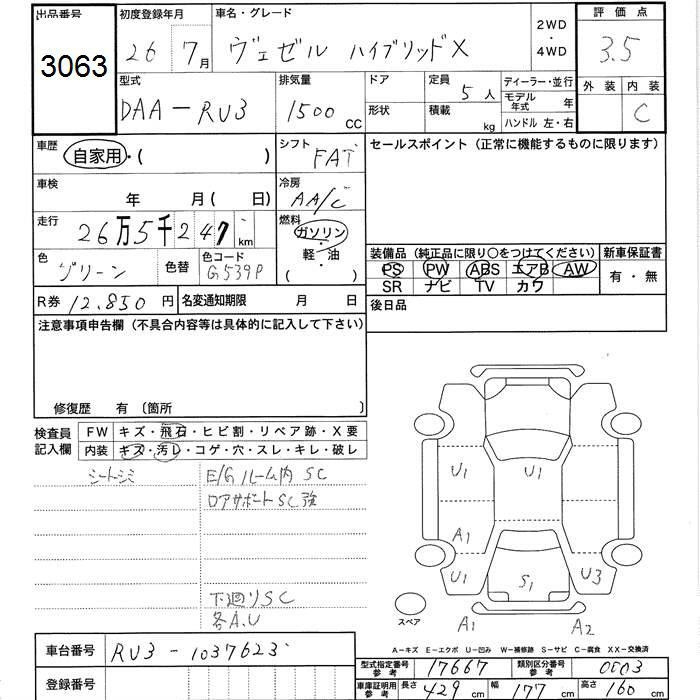 出品番号
3063
初度登録年月
26 7月
車名・グレード
ヴェゼル ハイブリッドX
2WD
・
4WD
評価点
3.5
型式
DAA-RU3
排気量
1500 CC
ドア
形状
定員
5人
積載
kg
ディーラー・並行
モデル年式 年
ハンドル 左・右
外装 内装
C
車歴
自家用・( )
シフト
FAT
セールスポイント（正常に機能するものに限ります）
車検
年 月( 日)
冷房
AA/C
走行
26万5千247km
燃料
ガソリン
・
軽・油
( )
色
グリーン
色替
色コード
G539P
装備品（純正品に限り○をつけてください）
PS PW ABS エアB AW
SR ナビ TV カワ
新車保証書
有・無
R券 12.850 円
名変通知期限 月 日
後日品
注意事項申告欄（不具合内容等は具体的に記入して下さい）
修復歴 有 〔箇所 〕
検査員
記入欄
FW キズ・飛石・ヒビ割・リペア跡・X要
内装 キズ・汚レ・コゲ・穴・スレ・キレ・破レ
シートシミ
E/Gルーム内 SC
ロアサポートSC強
下廻りSC
各A.U
U1
U1
A1
U1
S1
U3
スペア
A1
A2
A－キズ E－エクボ U－凹み W－補修跡 S－サビ C－腐食 XX－交換済
車台番号
RU3-1037623
登録番号
型式指定番号
参考
17667
類別区分番号
参考
0003
車庫証明用
参考
長さ 429 cm
幅 177 cm
高さ 160 cm